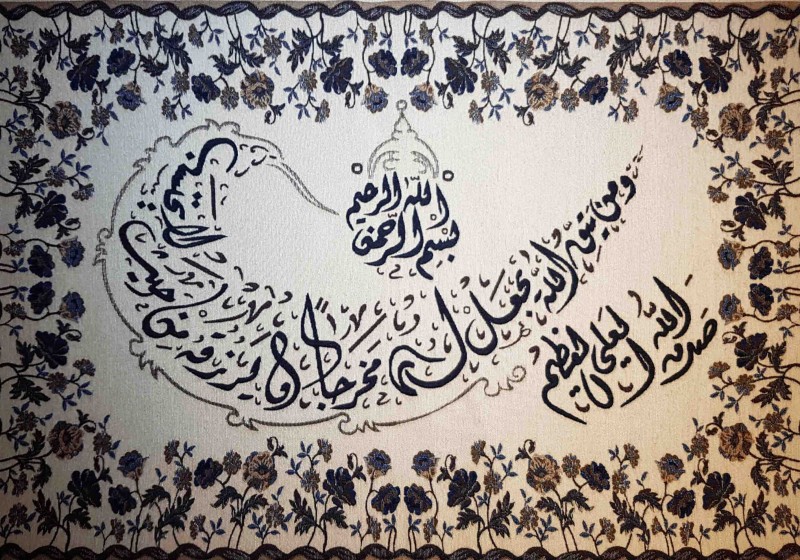 بسم الله الرحمن الرحيم
ومن يتق الله يجعل له مخرجاً ويرزقه من حيث لا يحتسب
صدق الله العلي العظيم